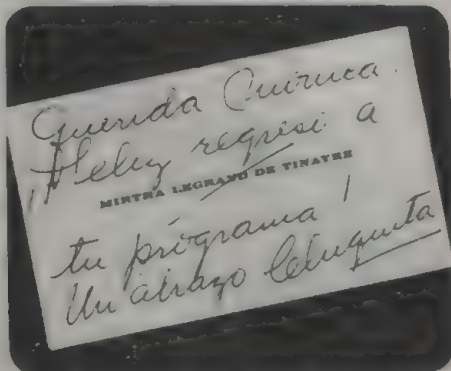 Querida Pinuca.
¡Feliz regreso a
MIRTHA LEGRAND DE TINAYRE
tu programa!
Un abrazo Chiquita